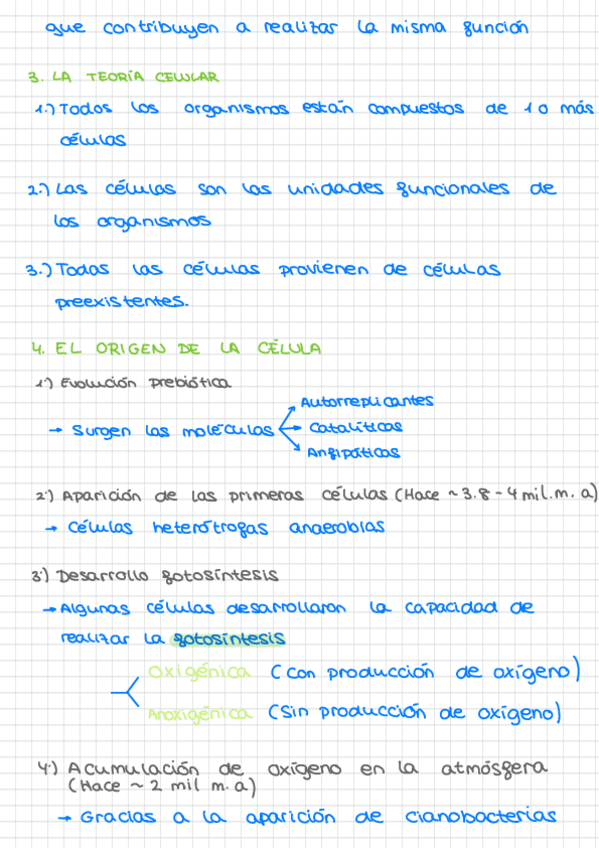 que contribuyen a realizar la misma función
3. LA TEORÍA CELULAR
1.) Todos los organismos están compuestos de 1 o más
células
2.) Las células son las unidades funcionales de
los organismos
3.) Todas las células provienen de células
preexistentes.
4. EL ORIGEN DE LA CÉLULA
1.) Evolución prebiótica
→ Surgen las moléculas
Autorreplicantes
Catalíticas
Anfipáticas
2.) Aparición de las primeras células (Hace ~ 3.8 - 4 mil. m. a)
→ Células heterótrofas anaerobias
3.) Desarrollo fotosíntesis
→ Algunas células desarrollaron la capacidad de
realizar la fotosíntesis
Oxigénica (con producción de oxígeno)
Anoxigénica (Sin producción de oxígeno)
4.) Acumulación de oxígeno en la atmósfera
(Hace ~ 2 mil m. a)
→ Gracias a la aparición de cianobacterias